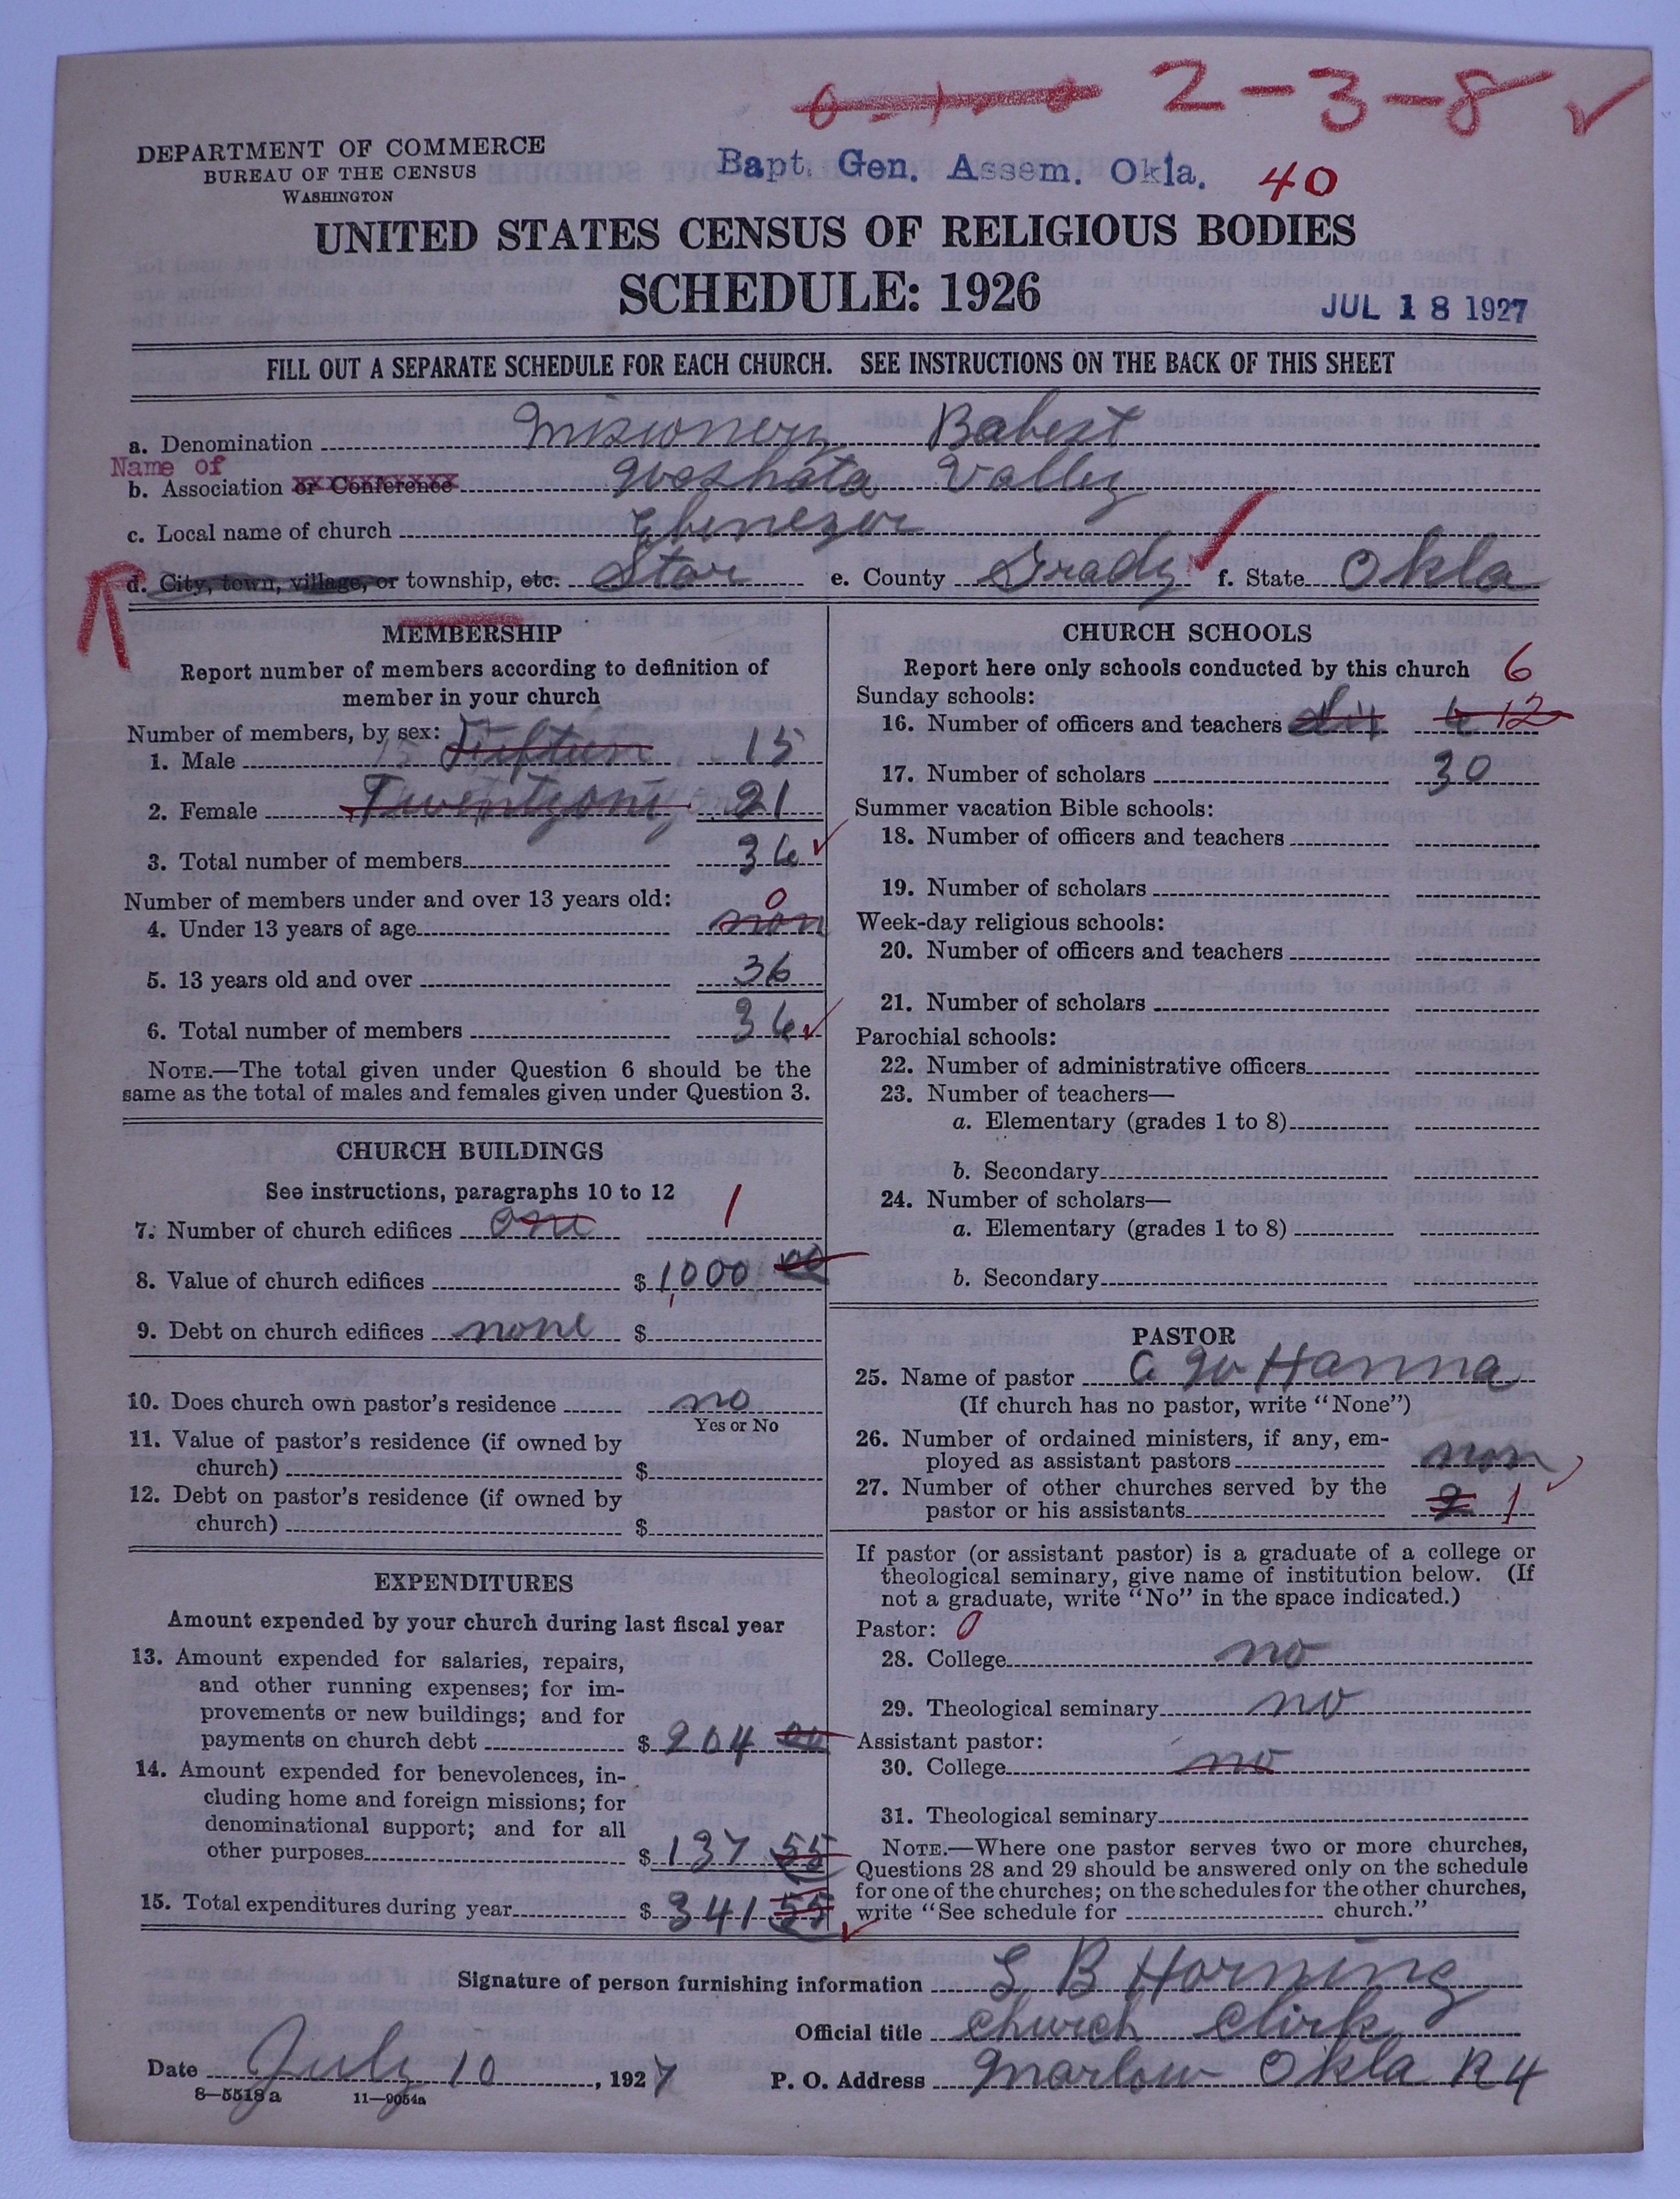 0-1-0 2-3-8
DEPARTMENT OF COMMERCE
BUREAU OF THE CENSUS
WASHINGTON
Bapt. Gen. Assem. Okla. 40
UNITED STATES CENSUS OF RELIGIOUS BODIES
SCHEDULE: 1926
JUL 18 1927
FILL OUT A SEPARATE SCHEDULE FOR EACH CHURCH. SEE INSTRUCTIONS ON THE BACK OF THIS SHEET
a. Denomination Missionery Babest
Name of
b. Association or Conference Woshata Valley
c. Local name of church Ebenezer
d. City, town, village, or township, etc. Star e. County Grady f. State Okla
MEMBERSHIP
Report number of members according to definition of
member in your church
Number of members, by sex:
1. Male 15 Fifteen 15
2. Female Twentyone 21
3. Total number of members 36
Number of members under and over 13 years old: 0
4. Under 13 years of age non
5. 13 years old and over 36
6. Total number of members 36
NOTE.—The total given under Question 6 should be the
same as the total of males and females given under Question 3.
CHURCH BUILDINGS
See instructions, paragraphs 10 to 12
7. Number of church edifices one 1
8. Value of church edifices $ 1,000 00
9. Debt on church edifices none $
10. Does church own pastor's residence no
Yes or No
11. Value of pastor's residence (if owned by
church) $
12. Debt on pastor's residence (if owned by
church) $
EXPENDITURES
Amount expended by your church during last fiscal year
13. Amount expended for salaries, repairs,
and other running expenses; for im-
provements or new buildings; and for
payments on church debt $ 204 00
14. Amount expended for benevolences, in-
cluding home and foreign missions; for
denominational support; and for all
other purposes $ 137 55
15. Total expenditures during year $ 341 55
CHURCH SCHOOLS
Report here only schools conducted by this church 6
Sunday schools:
16. Number of officers and teachers 6 12
17. Number of scholars 30
Summer vacation Bible schools:
18. Number of officers and teachers
19. Number of scholars
Week-day religious schools:
20. Number of officers and teachers
21. Number of scholars
Parochial schools:
22. Number of administrative officers
23. Number of teachers—
a. Elementary (grades 1 to 8)
b. Secondary
24. Number of scholars—
a. Elementary (grades 1 to 8)
b. Secondary
PASTOR
25. Name of pastor C W Hanna
(If church has no pastor, write "None")
26. Number of ordained ministers, if any, em-
ployed as assistant pastors non
27. Number of other churches served by the
pastor or his assistants 2 1
If pastor (or assistant pastor) is a graduate of a college or
theological seminary, give name of institution below. (If
not a graduate, write "No" in the space indicated.)
Pastor: 0
28. College no
29. Theological seminary no
Assistant pastor:
30. College no
31. Theological seminary
NOTE.—Where one pastor serves two or more churches,
Questions 28 and 29 should be answered only on the schedule
for one of the churches; on the schedules for the other churches,
write "See schedule for church."
Signature of person furnishing information L B Horning
Official title Church Clirk
Date July 10, 1927 P. O. Address Marlow Okla R 4
8—5518a 11—9054a